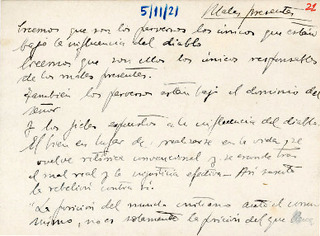 5/11/21
Males presentes
21
Creemos que son los perversos los únicos que están
bajo la influencia del diablo
Creemos que son ellos los únicos responsables
de los males presentes.
También los perversos están bajo el dominio del
Señor
Y los fieles expuestos a la influencia del diablo.
El bien en lugar de realizarse en la vida, se
vuelve retórica convencional y se esconde tras
el mal real y la injusticia efectiva - Así suscita
la rebelión contra sí.
"La posición del mundo cristiano ante el comu-
nismo, no es solamente la posición del que lleva